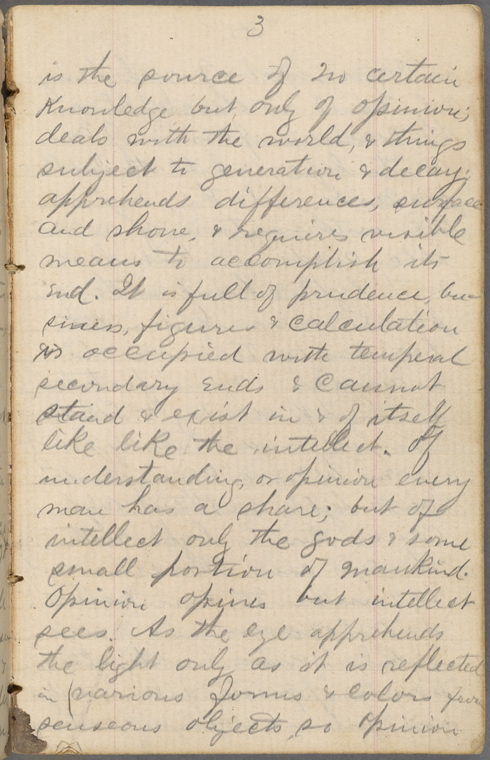 3
is the source of no certain
Knowledge but only of opinion;
deals with the world, & things
subject to generation & decay;
apprehends differences, surface
and shows, & requires visible
means to accomplish its
end. It is full of prudence, bu-
siness, figures & calculation
is occupied with temporal
secondary ends & cannot
stand & exist in & of itself
like like the intellect. Of
understanding, or opinion every
man has a share; but of
intellect only the gods & some
small portion of mankind.
Opinion opines but intellect
sees. As the eye apprehends
the light only as it is reflected
in various forms & colors from
senseous objects, so opinion